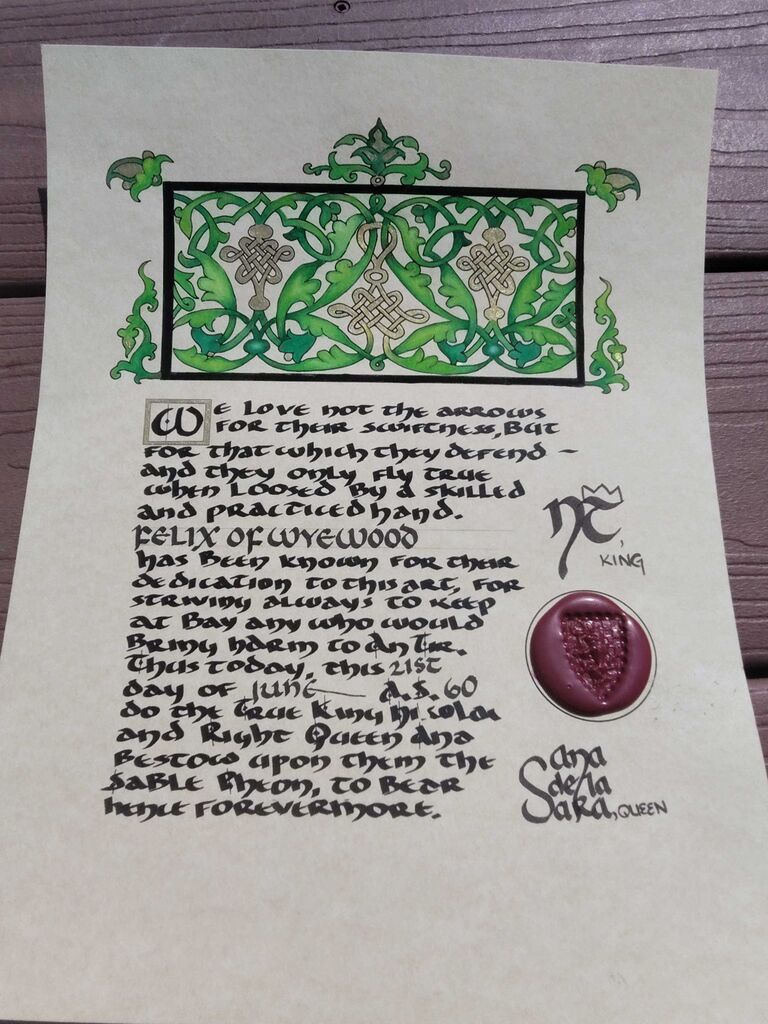 We love not the arrows
for their swiftness, but
for that which they defend –
and they only fly true
when loosed by a skilled
and practiced hand.
Felix of Wyewood
has been known for their
dedication to this art, for
striving always to keep
at bay any who would
bring harm to An Tir.
Thus today, this 21st
day of June A.S. 60
do the True King Nicolai
and Right Queen Ana
bestow upon them the
Sable Pheon, to bear
hence forevermore.
King
Ana
de la
Sara, Queen